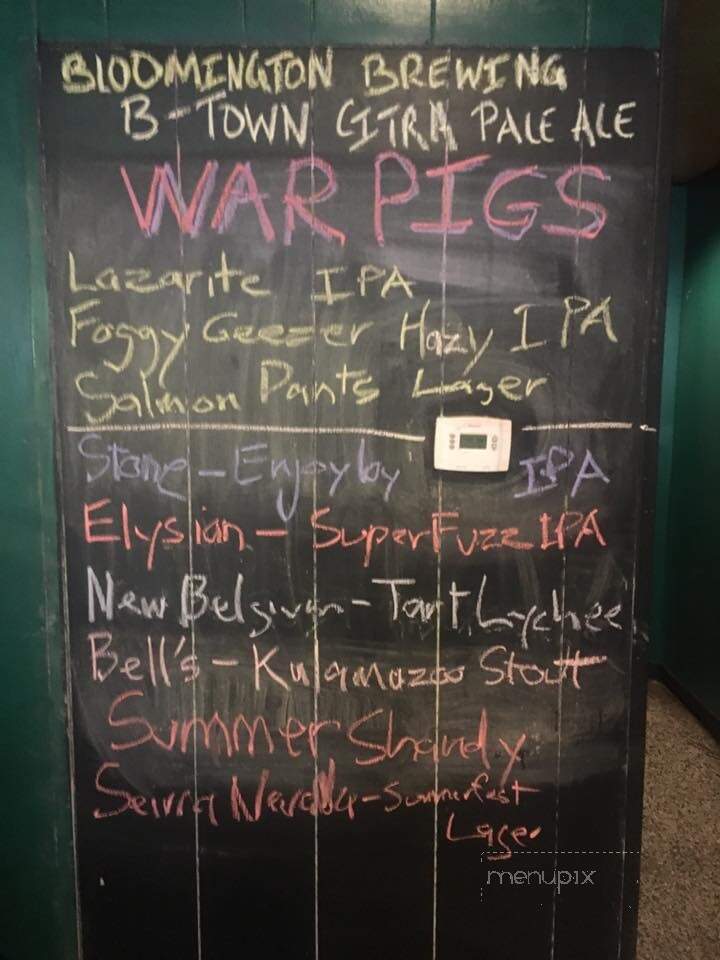 BLOOMINGTON BREWING
B-TOWN CITRA PALE ALE
WAR PIGS
Lazarite IPA
Foggy Geezer Hazy IPA
Salmon Pants Lager
Stone - Enjoy by IPA
Elysian - SuperFuzz IPA
New Belgium - Tart Lychee
Bell's - Kalamazoo Stout
Summer Shandy
Seirra Nevada - Summerfest
Lager
menupix